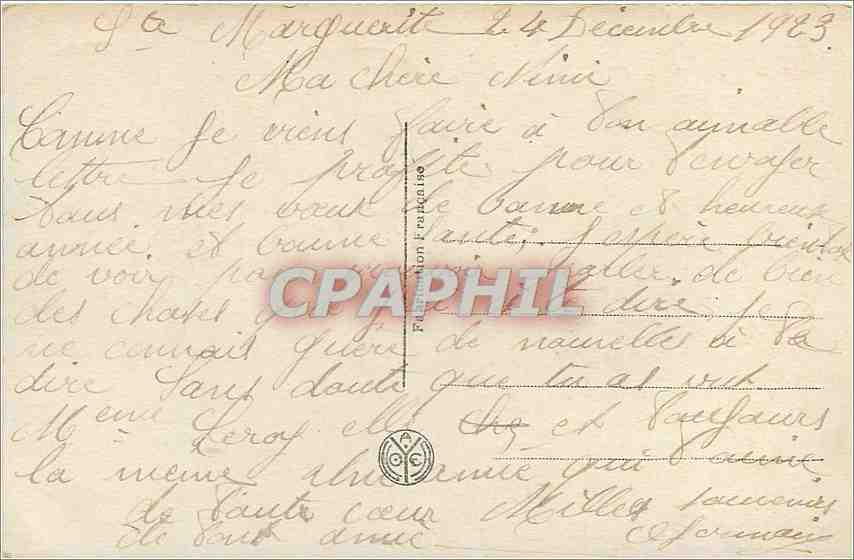 Ste Marguerite 24 Décembre 1923
Ma chère Nini
Comme je viens faire à ton aymable
lettre je profite pour t'envoyer
tous mes vœux de bonne et heureuse
année et bonne santé, j'espère
de voir pour parler de bien
des choses que j'ai à te dire je
ne connais guère de nouvelles à te
dire Sans doute que tu as vue
Mme Leroy elle est toujours
la même une amie qui
de toute cœur Milles souvenirs
de ton amie Germain
Fabrication Française
CPAPHIL